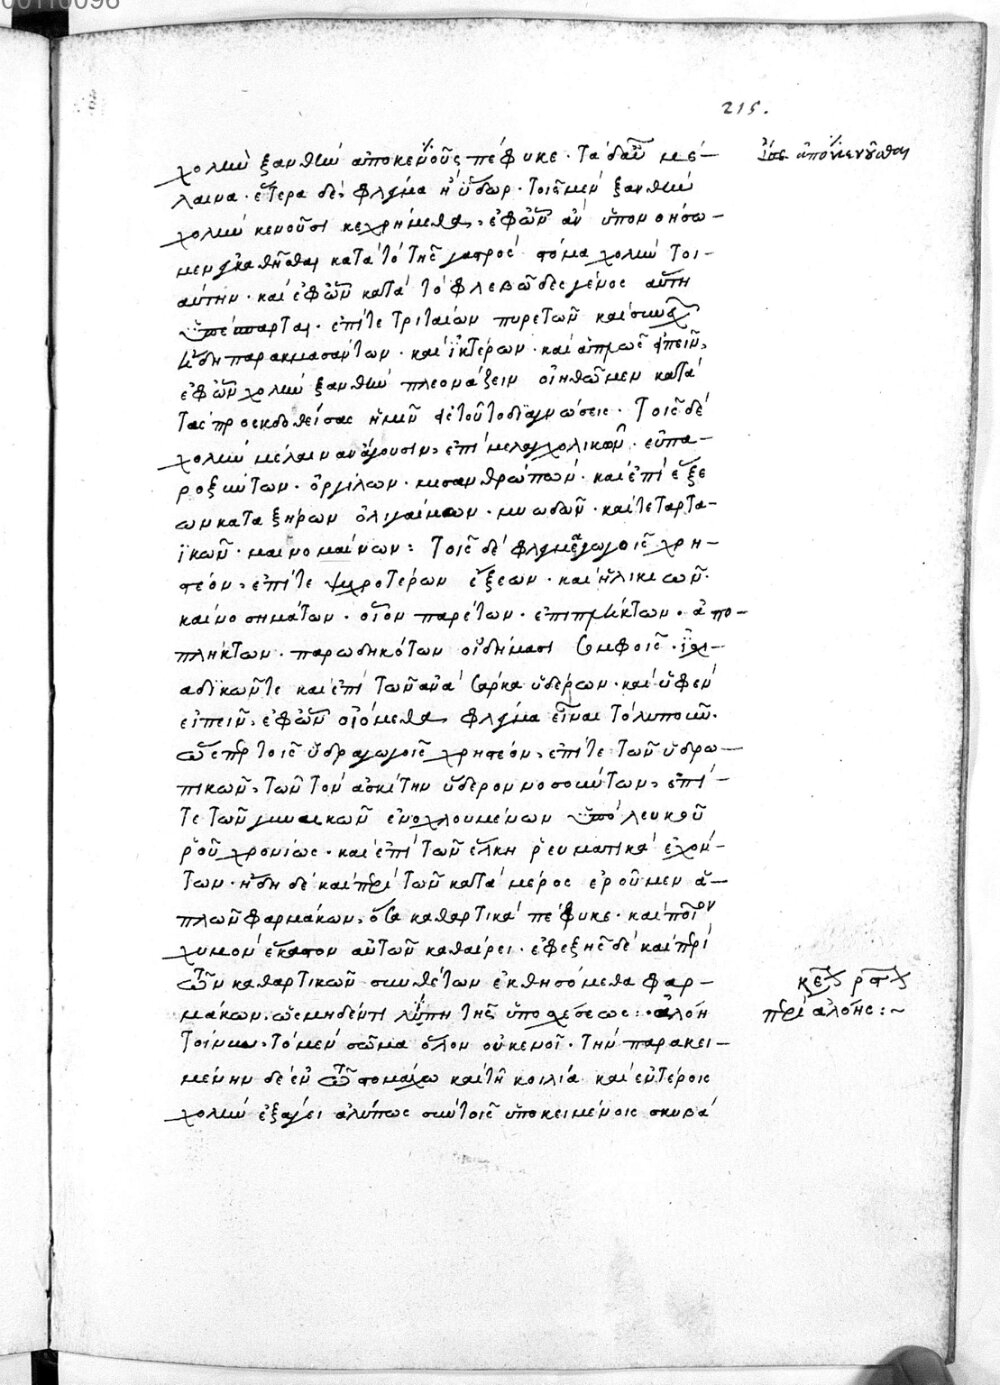 215.
χολὴν ξανθὴν ἀποκενοῦς πέφυκε. τὰ δ' αὖ μέ-
λαινα. ἕτερα δὲ, φλέγμα ἢ ὕδωρ. τοῖς μὲν ξανθὴν
χολὴν κενοῦσι κεχρήμεθα, ἐφ' ὧν ἂν ὑπονοήσω-
μεν ἐγκαθῆσθαι κατὰ τὸ τῆς γαστρὸς στόμα χολὴν τοι-
αύτην. καὶ ἐφ' ὧν κατὰ τὸ φλεβῶδες γένος αὕτη
ἐπί τε τριταίων πυρετῶν καὶ συνεχῶν
ἤδη παρακμασάντων. καὶ ἰκτέρων. καὶ ἁπλῶς εἰπεῖν,
ἐφ' ὧν χολὴν ξανθὴν πλεονάζειν οἰηθῶμεν κατὰ
τὰς προεκδοθείσας ἡμῖν εἰς τοῦτο διαγνώσεις. τοῖς δὲ
χολὴν μέλαιναν ἄγουσιν, ἐπὶ μελαγχολικῶν. εὐπα-
ροξύντων. ὀργίλων. μισανθρώπων. καὶ ἐπὶ ἕξε
ων καταξήρων ὀλιγαίμων. μυωδῶν. καὶ τεταρτα-
ϊκῶν. μαινομαίνων: τοῖς δὲ φλεγμαγωγοῖς χρη-
στέον, ἐπί τε ψυχροτέρων ἕξεων. καὶ ἡλικιῶν.
καὶ νοσημάτων. οἷον παρέτων. ἐπιλήπτων. ἀπο-
πλήκτων. παρωδηκότων οἰδήμασι σομφοῖς. ἰσχι-
αδικῶν τε καὶ ἐπὶ τῶν ἀνὰ σάρκα ὑδέρων. καὶ ὑφὲν
εἰπεῖν, ἐφ' ὧν οἰόμεθα φλέγμα εἶναι τὸ λυποῦν.
ὥσπερ τοῖς ὑδραγωγοῖς χρηστέον, ἐπί τε τῶν ὑδρω-
πικῶν, τῶν τὸν ἀσκίτην ὕδερον νοσούντων, ἐπί-
τε τῶν γυναικῶν ἐνοχλουμένων ὑπὸ λευκοῦ
ῥοῦ χρονίως. καὶ ἐπὶ τῶν ἕλκη ῥευματικὰ ἐχόν-
των. ἤδη δὲ καὶ περὶ τῶν κατὰ μέρος ἐροῦμεν ἁ-
πλῶν φαρμάκων, ὅσα καθαρτικὰ πέφυκε. καὶ ποῖον
χυμὸν ἕκαστον αὐτῶν καθαίρει. ἐφεξῆς δὲ καὶ περὶ
τῶν καθαρτικῶν συνθέτων ἐκθησόμεθα φαρ-
μάκων. ὡς μηδὲν τι λείπῃ τῆς ὑποσχέσεως: ἀλόη
τοίνυν. τὸ μὲν σῶμα ὅλον οὐ κενοῖ. τὴν παρακει-
μένην δὲ ἐν τῷ στομάχῳ καὶ τῇ κοιλίᾳ καὶ ἐντέροις
χολὴν ἐξάγει ἀλύπως σὺν τοῖς ὑποκειμένοις σκυβά
περὶ ἀλόης:~